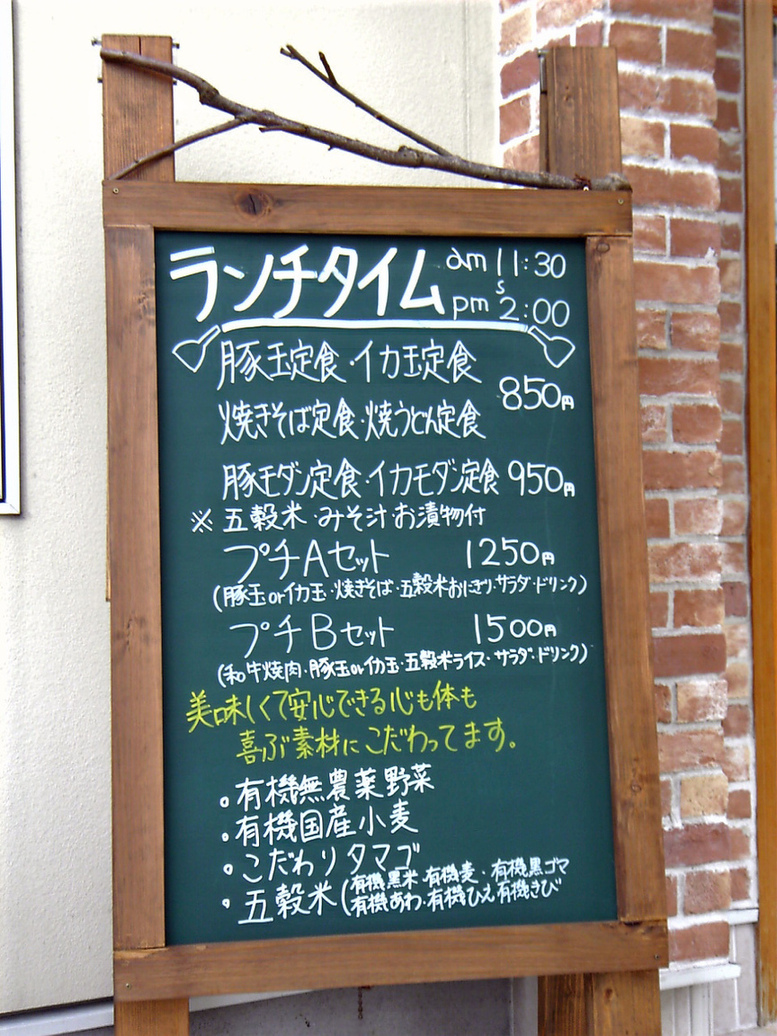 ランチタイム am 11:30
s
pm 2:00
豚玉定食・イカ玉定食
850円
焼きそば定食・焼うどん定食
豚モダン定食・イカモダン定食 950円
※ 五穀米・みそ汁・お漬物付
プチAセット 1250円
(豚玉orイカ玉・焼きそば・五穀米おにぎり・サラダ・ドリンク)
プチBセット 1500円
(和牛焼肉・豚玉orイカ玉・五穀米ライス・サラダ・ドリンク)
美味しくて安心できる心も体も
喜ぶ素材にこだわってます。
・有機無農薬野菜
・有機国産小麦
・こだわりタマゴ
・五穀米(有機黒米・有機麦・有機黒ゴマ
有機あわ・有機ひえ 有機きび